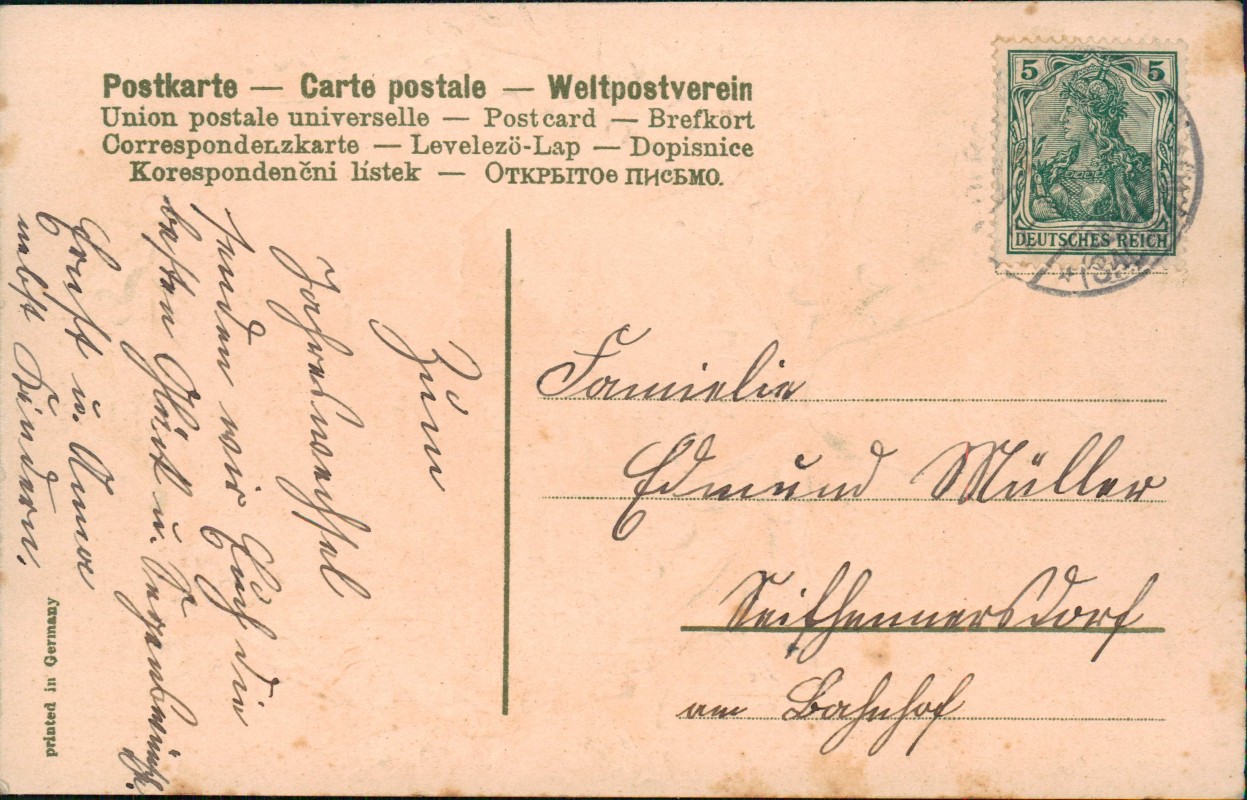 Postkarte — Carte postale — Weltpostverein
Union postale universelle — Postcard — Brefkort
Correspondenzkarte — Levelezö-Lap — Dopisnice
Korespondenčni lístek — Открытое письмо.
5 5
DEUTSCHES REICH
Zum
Jahreswechsel
senden wir Euch die
besten Glück u. Segenswünsche.
Ernst u. Anna
nebst Kindern.
Famielie
Edmund Müller
Seifhennersdorf
am Bahnhof
printed in Germany